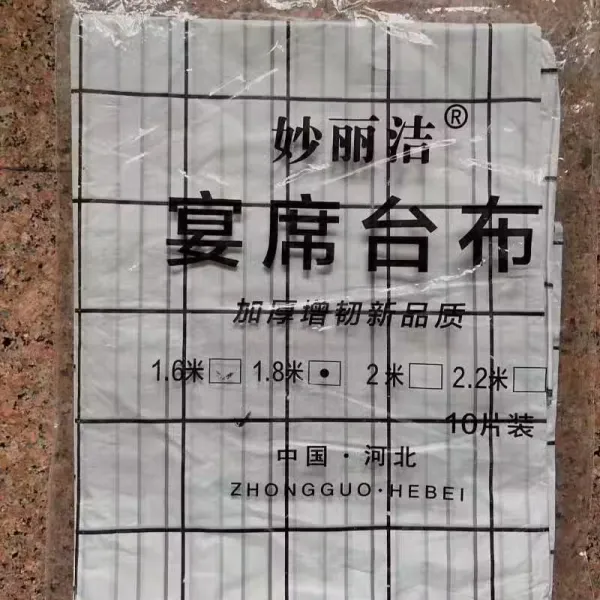 妙丽洁®
宴席台布
加厚增韧新品质
1.6米 1.8米 2米 2.2米
10片装
中国·河北
ZHONGGUO·HEBEI